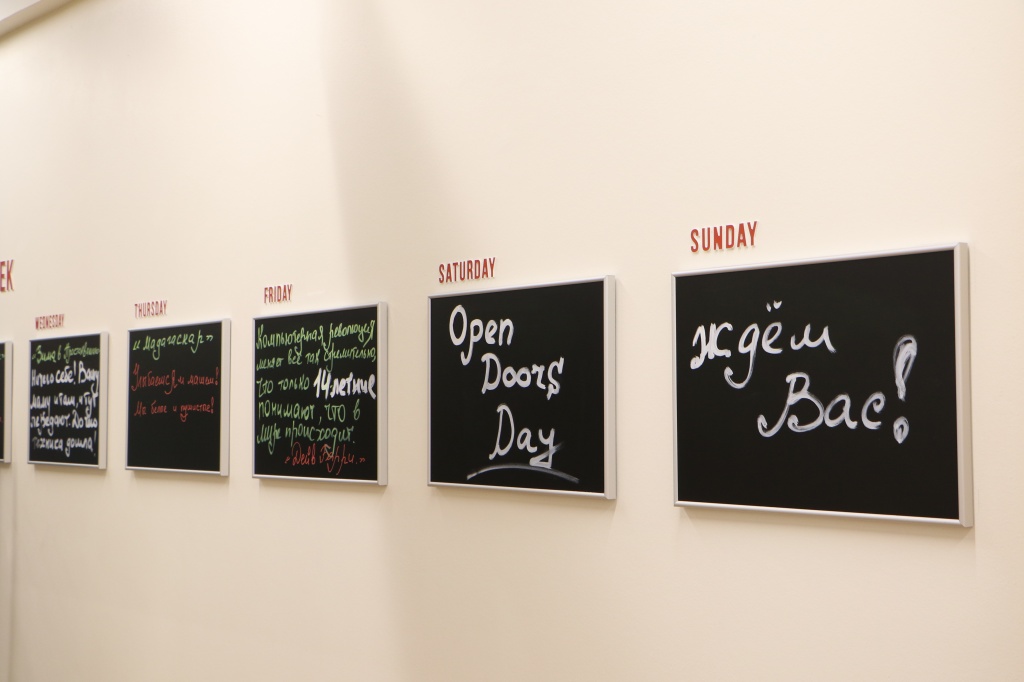 EK
WEDNESDAY
«Зима в Простоквашино»
Ничего себе! Вашу
маму и там, и тут
показывают. До чего
техника дошла!
THURSDAY
«Мадагаскар»
Улыбаемся и машем!
FRIDAY
Компьютерная революция
меняет всё так стремительно,
что только 14-летние
понимают, что в
мире происходит.
«Дейв Барри.»
SATURDAY
Open
Doors
Day
SUNDAY
Ждём
Вас!